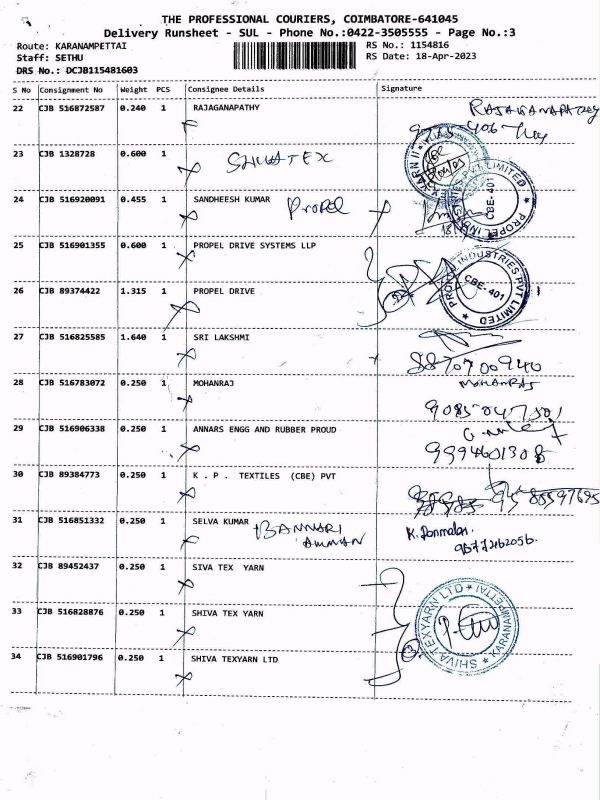 THE PROFESSIONAL COURIERS, COIMBATORE-641045
Delivery Runsheet - SUL - Phone No.:0422-3505555 - Page No.:3
Route: KARANAMPETTAI RS No.: 1154816
Staff: SETHU RS Date: 18-Apr-2023
DRS No.: DCJB115481603
S No Consignment No Weight PCS Consignee Details Signature
22 CJB 516872587 0.240 1 RAJAGANAPATHY
23 CJB 1328728 0.600 1 SHIVATEX
24 CJB 516920091 0.455 1 SANDHEESH KUMAR Propel
PROPEL INDUSTRIES PVT LIMITED CBE-401
25 CJB 516901355 0.600 1 PROPEL DRIVE SYSTEMS LLP
26 CJB 89374422 1.315 1 PROPEL DRIVE
PROPEL INDUSTRIES PVT LIMITED CBE-401
27 CJB 516825585 1.640 1 SRI LAKSHMI
8870700940
28 CJB 516783072 0.250 1 MOHANRAJ MOHANRAJ
9085047501
29 CJB 516906338 0.250 1 ANNARS ENGG AND RUBBER PROUD
9994601308
30 CJB 89384773 0.250 1 K . P . TEXTILES (CBE) PVT
31 CJB 516851332 0.250 1 SELVA KUMAR BANNARI AMMAN
32 CJB 89452437 0.250 1 SIVA TEX YARN
33 CJB 516828876 0.250 1 SHIVA TEX YARN
SHIVA TEXYARN LTD KARANAMPETTAI
34 CJB 516901796 0.250 1 SHIVA TEXYARN LTD 3